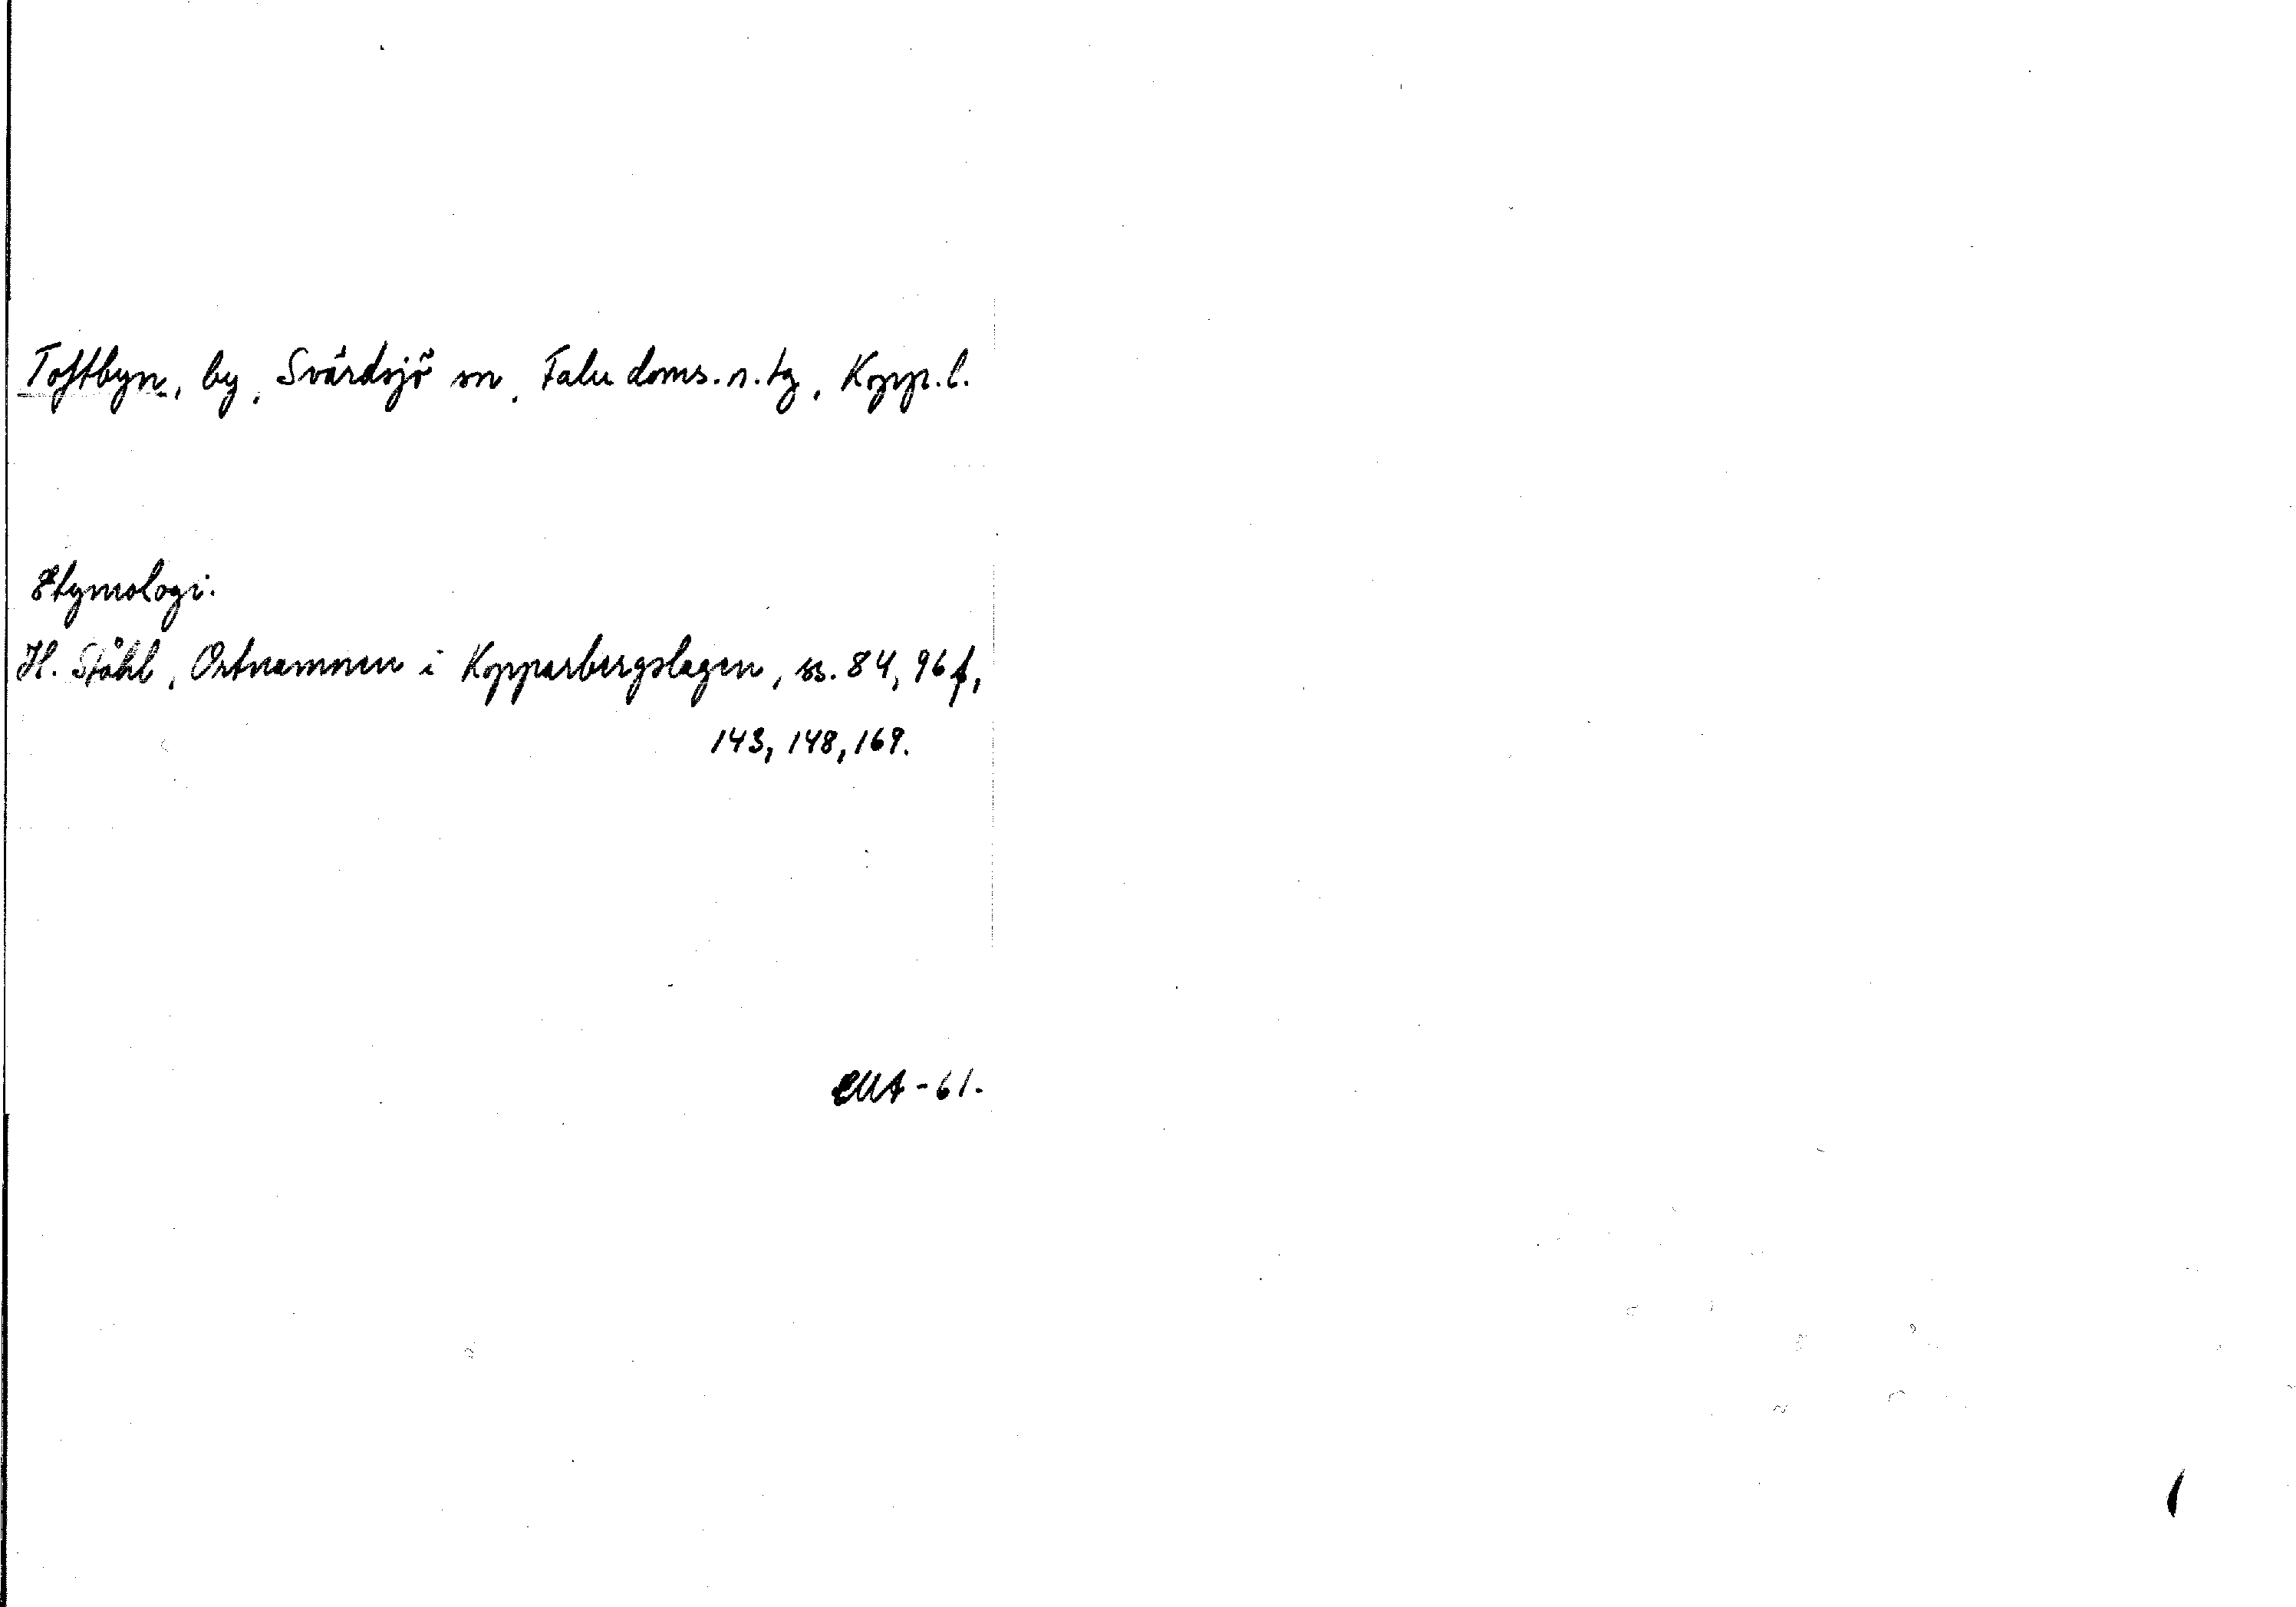 Toftbyn, by, Svärdsjö sn, Falu doms. n. tg, Kopp. l.
Etymologi.
H. Ståhl, Ortnamnen i Kopparbergslagen, ss. 84, 96 f,
143, 148, 169.
EMA-61.